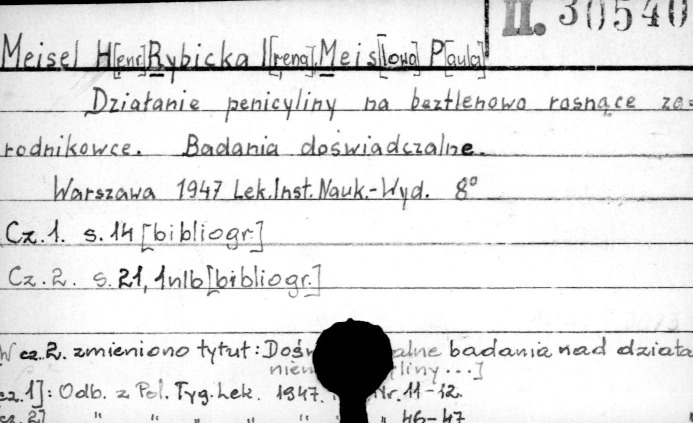 II. 30540
Meisel H[enr] Rybicka I[rena], Meis[lowa] P[aula]
Działanie penicyliny na beztlenowo rosnące za=
rodnikowce. Badania doświadczalne.
Warszawa 1947 Lek.Inst.Nauk.-Wyd. 8°
Cz.1. s.14 [bibliogr.]
Cz.2. s.21, 1nlb [bibliogr.]
W cz.2. zmieniono tytuł: badania nad działa
...]
cz.1]: Odb. z Pol. Tyg. Lek. 1947. Nr.11-12.
cz.2] " " " " " 46-47